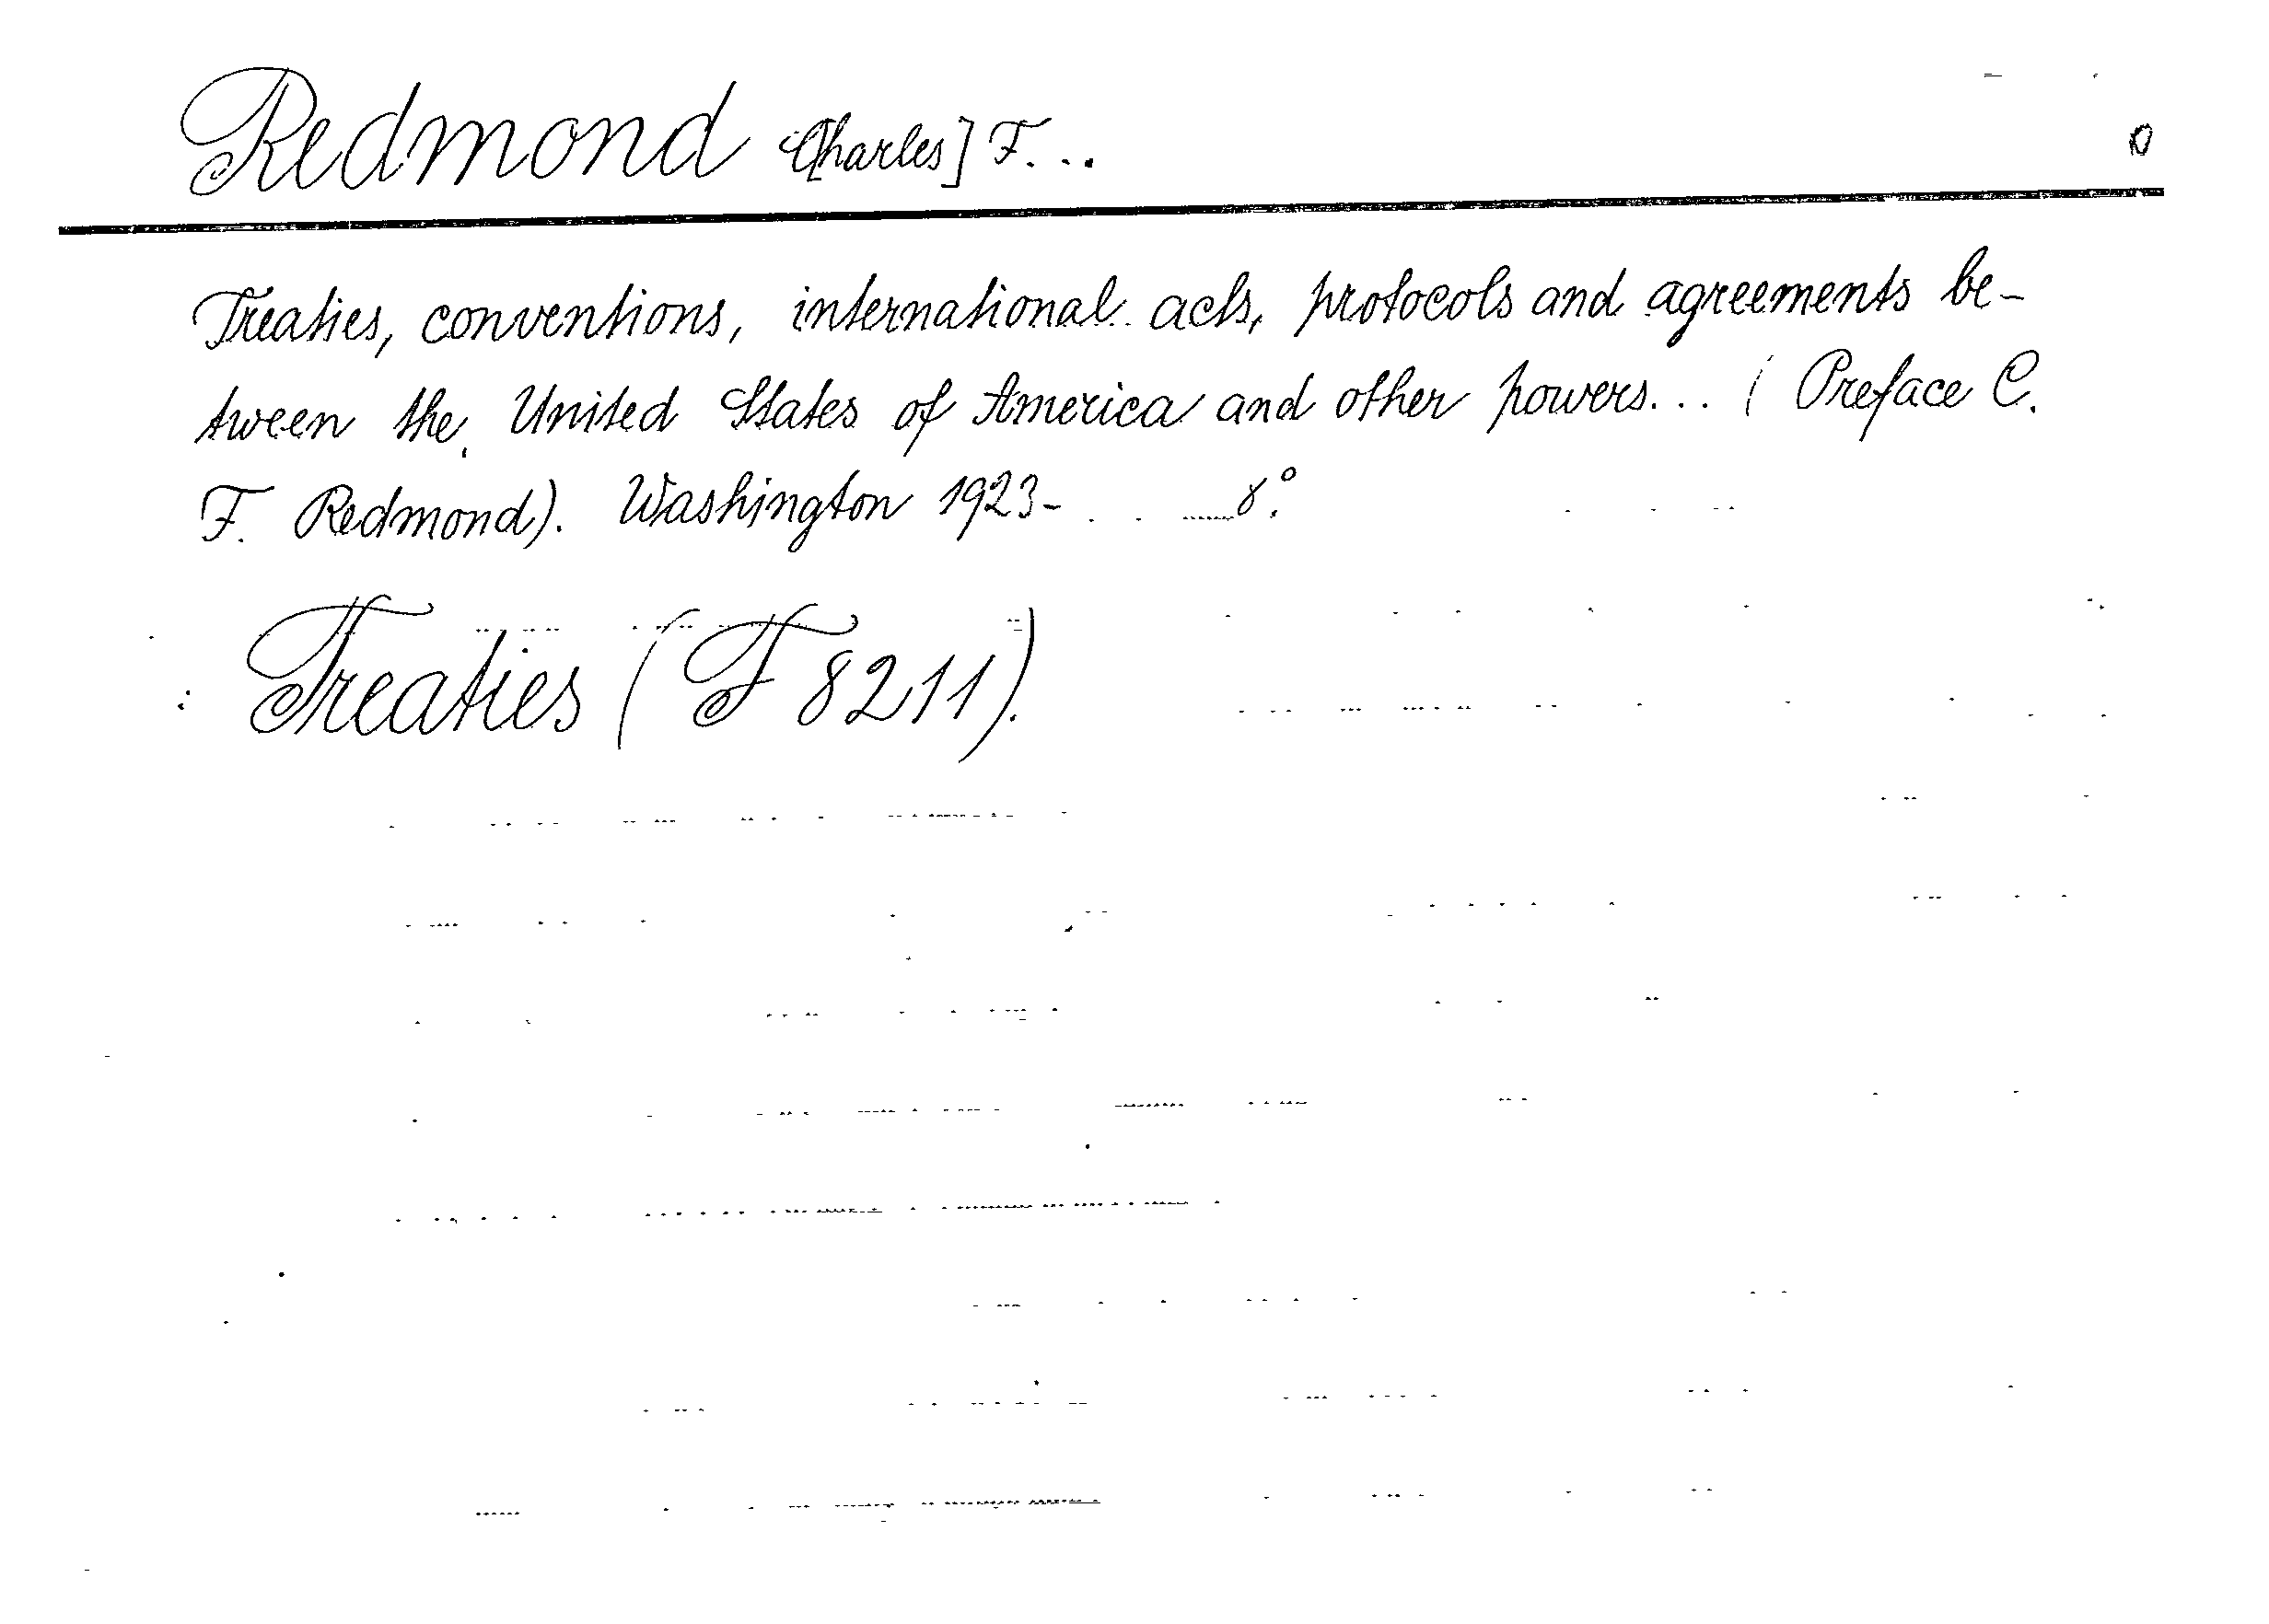 Redmond C[harles] F... 0
Treaties, conventions, international acts, protocols and agreements be-
tween the United States of America and other powers... (Preface C.
F. Redmond). Washington 1923- 8°.
Treaties (F 8211).